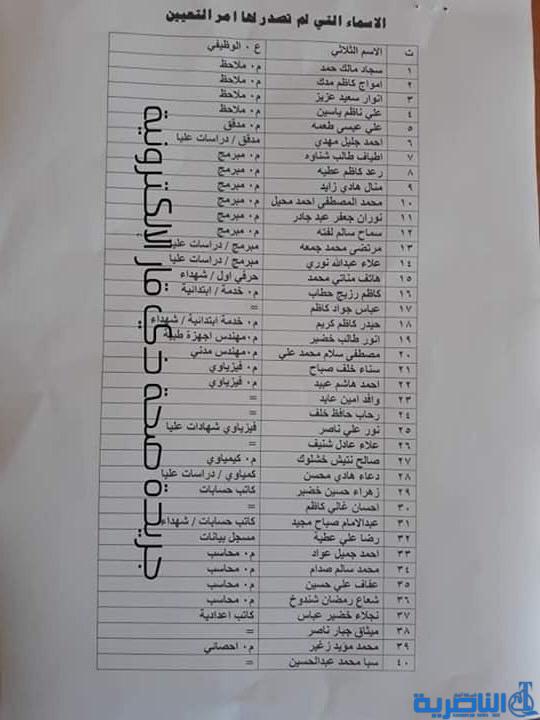 الاسماء التي لم تصدر لها امر التعيين
ت الاسم الثلاثي ع٠ الوظيفي
١ سجاد مالك حمد م٠ ملاحظ
٢ امواج كاظم مدك م٠ ملاحظ
٣ انوار سعيد عزيز م٠ ملاحظ
٤ علي ناظم ياسين م٠ ملاحظ
٥ علي عيسى طعمه م٠ مدقق
٦ احمد جليل مهدي مدقق / دراسات عليا
٧ اطياف طالب شناوه م٠ مبرمج
٨ رعد كاظم عطيه م٠ مبرمج
٩ منال هادي زايد م٠ مبرمج
١٠ محمد المصطفى احمد محيل م٠ مبرمج
١١ نوران جعفر عبد جادر م٠ مبرمج
١٢ سماح سالم لفته م٠ مبرمج
١٣ مرتضى محمد جمعه مبرمج / دراسات عليا
١٤ علاء عبدالله نوري مبرمج / دراسات عليا
١٥ هاتف مناتي محمد حرفي اول / شهداء
١٦ كاظم رزيج حطاب م٠ خدمة / ابتدائية
١٧ عباس جواد كاظم =
١٨ حيدر كاظم كريم م٠ خدمة ابتدائية / شهداء
١٩ انور طالب خضير م٠مهندس اجهزة طبية
٢٠ مصطفى سلام محمد علي م٠مهندس مدني
٢١ سناء خلف صباح م٠ فيزياوي
٢٢ احمد هاشم عبيد م٠ فيزياوي
٢٣ وافد امين عايد =
٢٤ رحاب حافظ خلف =
٢٥ نور علي ناصر فيزياوي شهادات عليا
٢٦ علاء عادل شنيف =
٢٧ صالح نتيش خشلوك م٠ كيمياوي
٢٨ دعاء هادي محسن كمياوي / دراسات عليا
٢٩ زهراء حسين خضير كاتب حسابات
٣٠ احسان غالي كاظم =
٣١ عبدالامام صباح مجيد كاتب حسابات / شهداء
٣٢ رضا علي عطية مسجل بيانات
٣٣ احمد جميل عواد م٠ محاسب
٣٤ محمد سالم صدام م٠ محاسب
٣٥ عفاف علي حسين م٠ محاسب
٣٦ شعاع رمضان شندوخ م٠ محاسب
٣٧ نجلاء خضير عباس كاتب اعدادية
٣٨ ميثاق جبار ناصر =
٣٩ محمد مؤيد زغير م٠ احصائي
٤٠ سبا محمد عبدالحسين =
جريدة صحة ذي قار الإلكترونية
الناصرية